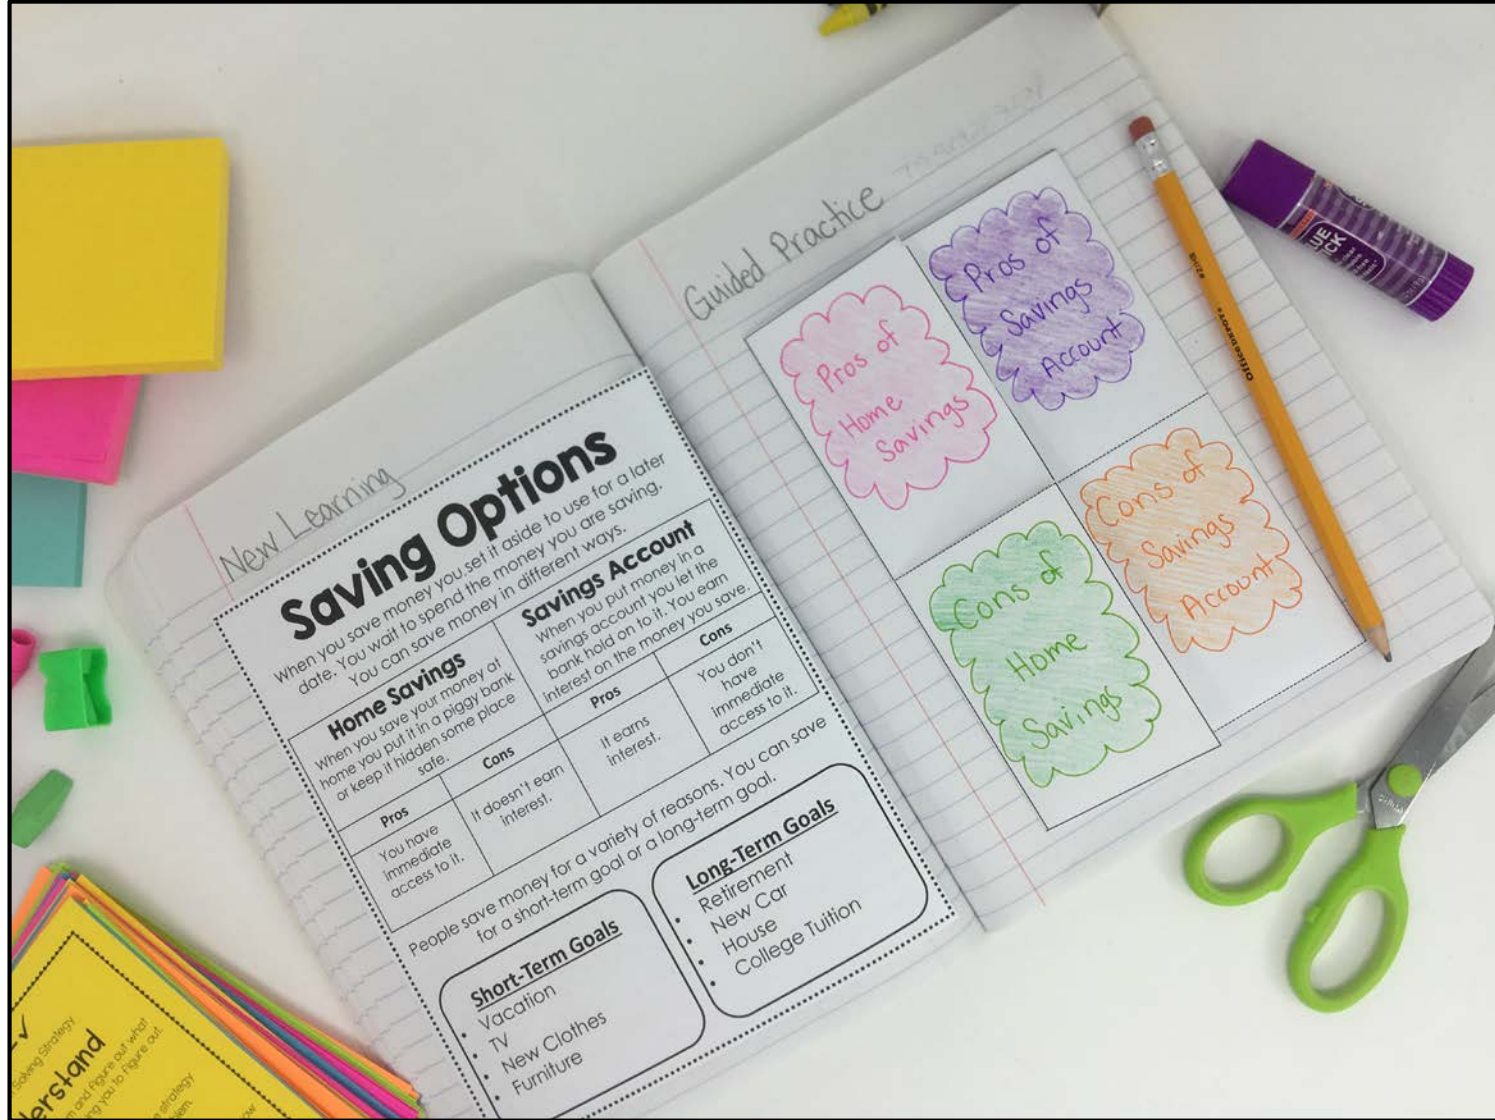 New Learning
Saving Options
When you save money you set it aside to use for a later
date. You wait to spend the money you are saving.
You can save money in different ways.
Home Savings
When you save your money at
home you put it in a piggy bank
or keep it hidden some place
safe.
Pros
Cons
You have
immediate
access to it.
It doesn't earn
interest.
Savings Account
When you put money in a
savings account you let the
bank hold on to it. You earn
interest on the money you save.
Pros
Cons
It earns
interest.
You don't
have
immediate
access to it.
People save money for a variety of reasons. You can save
for a short-term goal or a long-term goal.
Short-Term Goals
• Vacation
• TV
• New Clothes
• Furniture
Long-Term Goals
• Retirement
• New Car
• House
• College Tuition
Guided Practice
Pros of
Home
Savings
Pros of
Savings
Account
Cons of
Home
Savings
Cons of
Savings
Account
OfficeDEPOT
Solving Strategy
and figure out what
you to figure out.
strategy